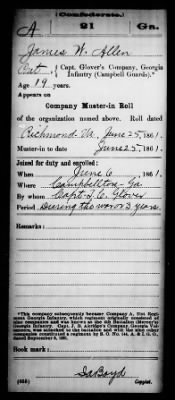 (Confederate.)
A 21 Ga.
James W. Allen
Pvt., Capt. Glover's Company, Georgia
Infantry (Campbell Guards).*
Age 19 years.
Appears on
Company Muster-in Roll
of the organization named above. Roll dated
Richmond Va. June 25, 1861.
Muster-in to date June 25, 1861.
Joined for duty and enrolled:
When June 6, 1861.
Where Campbellton Ga
By whom Capt T. C. Glover
Period During the war or 3 years.
Remarks:
*This company subsequently became Company A, 21st Regiment Georgia Infantry.
Book mark:
Copyist.